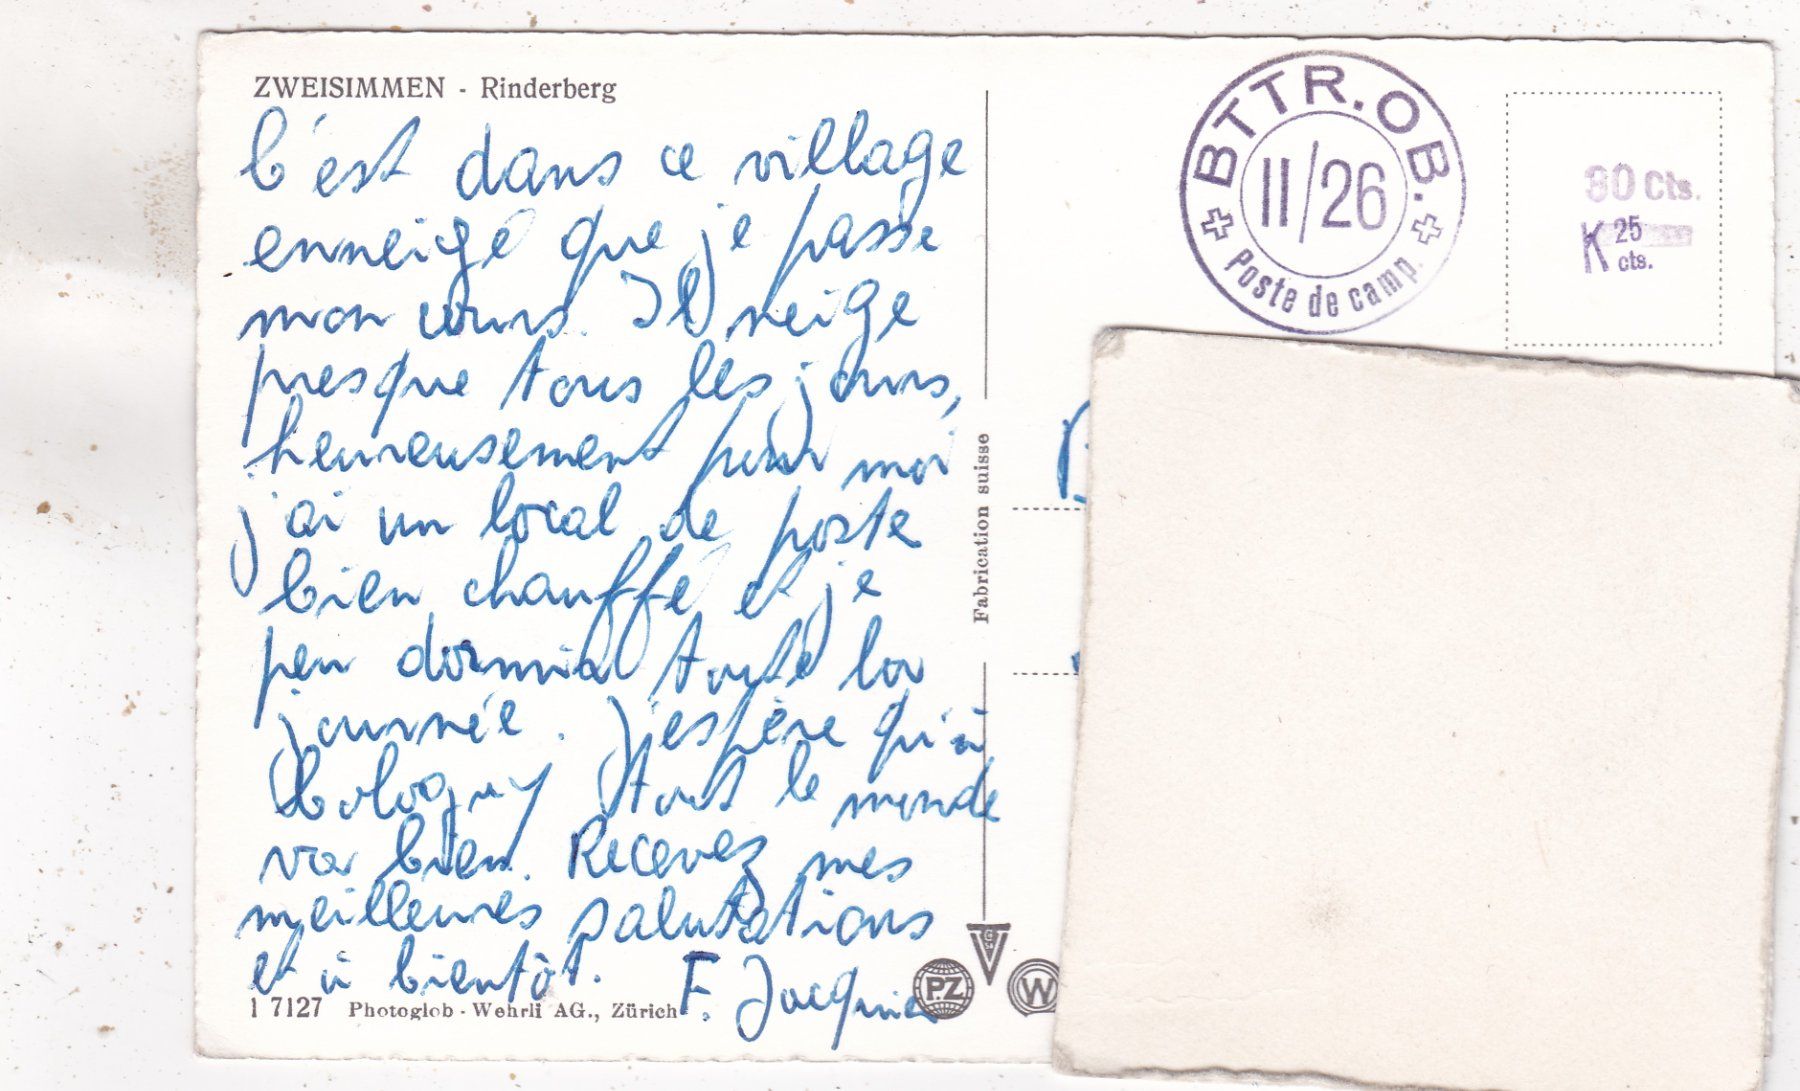 ZWEISIMMEN - Rinderberg
C'est dans ce village
enneigé que je passe
mon cours. Il neige
presque tous les jours,
heureusement pour moi
j'ai un local de poste
bien chauffé et je
peu dormir toute la
journée. J'espère qu'à
tout le monde
va bien. Recevez mes
meilleures salutations
et à bientôt. F. Jacquier
1 7127 Photoglob - Wehrli AG., Zürich
Fabrication suisse
PZ
W
BTTR. OB.
II/26
Poste de camp.
80 Cts.
K 25
cts.